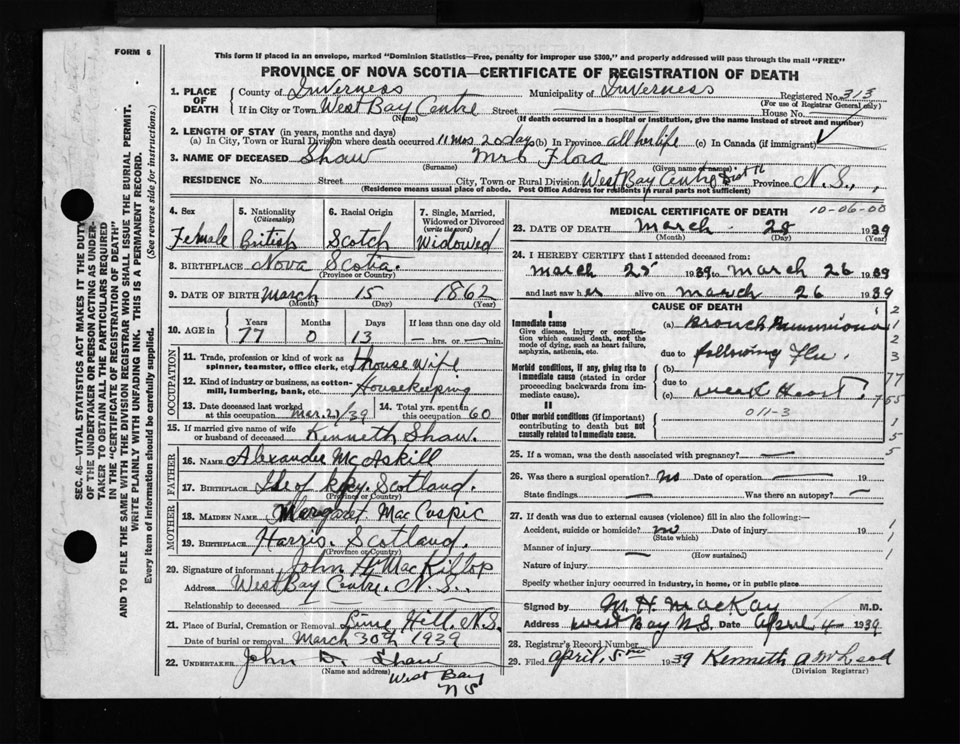 FORM 6
This form if placed in an envelope, marked "Dominion Statistics—Free, penalty for improper use $300," and properly addressed will pass through the mail "FREE"
PROVINCE OF NOVA SCOTIA—CERTIFICATE OF REGISTRATION OF DEATH
1. PLACE OF DEATH County of Inverness Municipality of Inverness Registered No. 313
(For use of Registrar General only)
If in City or Town West Bay Centre Street House No.
(Name) (If death occurred in a hospital or institution, give the name instead of street and number)
2. LENGTH OF STAY (in years, months and days)
(a) In City, Town or Rural Division where death occurred 11 mos 20 days (b) In Province all her life (c) In Canada (if immigrant)
3. NAME OF DECEASED Shaw Mrs Flora
(Surname) (Given name or names)
RESIDENCE No. Street City, Town or Rural Division West Bay Centre Dist 12 Province N.S.
(Residence means usual place of abode. Post Office Address for residents in rural parts not sufficient)
4. Sex Female
5. Nationality (Citizenship) British
6. Racial Origin Scotch
7. Single, Married, Widowed or Divorced (write the word) Widowed
8. BIRTHPLACE Nova Scotia.
(Province or Country)
9. DATE OF BIRTH March 15 1862
(Month) (Day) (Year)
10. AGE in Years Months Days If less than one day
77 0 13 hrs. or min.
OCCUPATION
11. Trade, profession or kind of work as spinner, teamster, office clerk, etc. House Wife
12. Kind of industry or business, as cotton-mill, lumbering, bank, etc. Housekeeping
13. Date deceased last worked at this occupation Mar. 23/39
14. Total yrs. spent in this occupation 60
15. If married give name of wife or husband of deceased Kenneth Shaw.
FATHER
16. NAME Alexander McAskill
17. BIRTHPLACE Isle of Skye. Scotland.
(Province or Country)
MOTHER
18. MAIDEN NAME Margaret MacCuspic
19. BIRTHPLACE Harris. Scotland.
(Province or Country)
20. Signature of informant John H. MacKillop
Address West Bay Centre. N.S.
Relationship to deceased
21. Place of Burial, Cremation or Removal Lime Hill. N.S.
Date of burial or removal March 30th 1939
22. UNDERTAKER John D. Shaw
(Name and address) West Bay
N S
MEDICAL CERTIFICATE OF DEATH
10-06-00
23. DATE OF DEATH March 28 1939
(Month) (Day) (Year)
24. I HEREBY CERTIFY that I attended deceased from:
March 25 1939 to March 26 1939
and last saw her alive on March 26 1939
CAUSE OF DEATH
I
Immediate cause
Give disease, injury or complication which caused death, not the mode of dying, such as heart failure, asphyxia, asthenia, etc.
(a) Bronch Pneumonia
due to
Morbid conditions, if any, giving rise to immediate cause (stated in order proceeding backwards from immediate cause).
(b) following Flu.
due to
(c) weak Heart
II
011-3
Other morbid conditions (if important) contributing to death but not causally related to immediate cause.
25. If a woman, was the death associated with pregnancy? —
26. Was there a surgical operation? no Date of operation — 19
State findings — Was there an autopsy? —
27. If death was due to external causes (violence) fill in also the following:—
Accident, suicide or homicide? no Date of injury 19
(State which)
Manner of injury —
(How sustained)
Nature of injury
Specify whether injury occurred in industry, in home, or in public place
Signed by M. H. MacKay M.D.
Address West Bay N.S. Date April 4 1939
28. Registrar's Record Number
29. Filed April, 5th 1939 Kenneth A McLeod
(Division Registrar)
SEC. 46—VITAL STATISTICS ACT MAKES IT THE DUTY
OF THE UNDERTAKER OR PERSON ACTING AS UNDER-
TAKER TO OBTAIN ALL THE PARTICULARS REQUIRED
IN THE "CERTIFICATE OF REGISTRATION OF DEATH"
AND TO FILE THE SAME WITH THE DIVISION REGISTRAR WHO SHALL ISSUE THE BURIAL PERMIT.
WRITE PLAINLY WITH UNFADING INK. THIS IS A PERMANENT RECORD.
Every item of information should be carefully supplied. (See reverse side for instructions.)